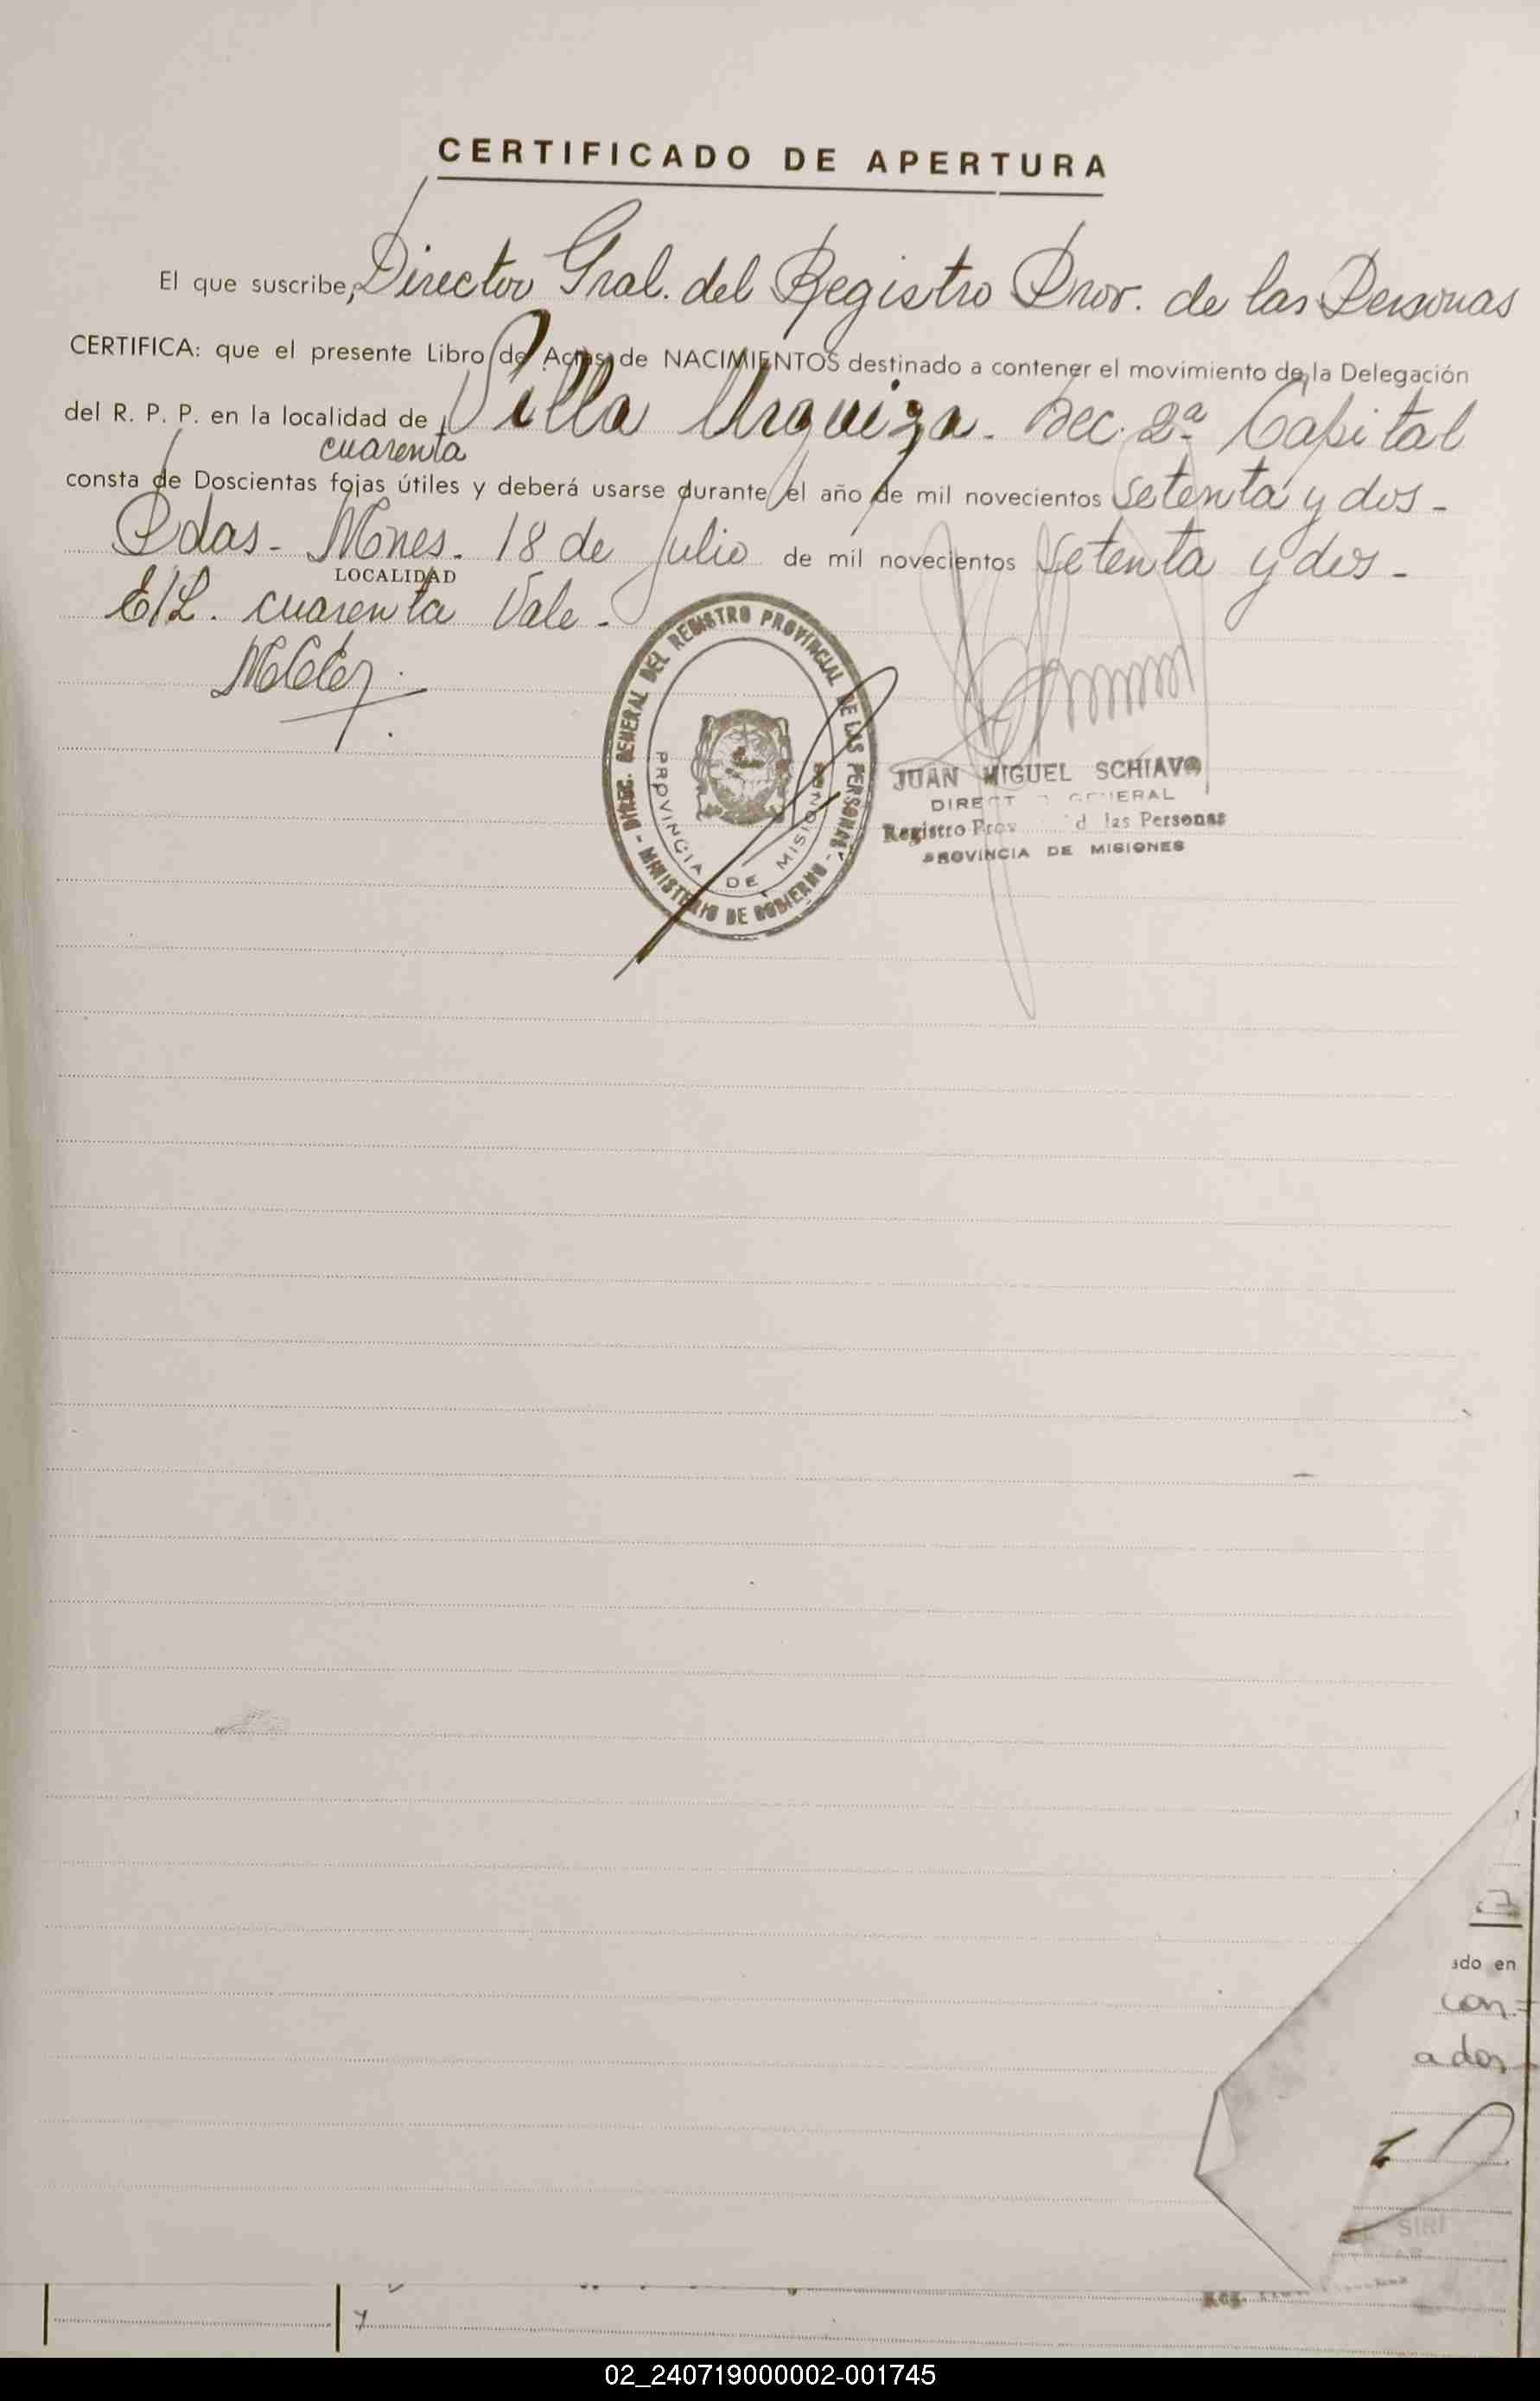 CERTIFICADO DE APERTURA
El que suscribe, Director Gral. del Registro Prov. de las Personas
CERTIFICA: que el presente Libro de Actas de NACIMIENTOS destinado a contener el movimiento de la Delegación
del R. P. P. en la localidad de Villa Urquiza. Sec. 2ª Capital
cuarenta
consta de Doscientas fojas útiles y deberá usarse durante el año de mil novecientos setenta y dos -
Pdas - Mnes. 18 de Julio de mil novecientos setenta y dos -
LOCALIDAD
E/L. cuarenta Vale -
DIREC. GENERAL DEL REGISTRO PROVINCIAL DE LAS PERSONAS - MINISTERIO DE GOBIERNO -
PROVINCIA DE MISIONES
JUAN MIGUEL SCHIAVO
DIRECT GENERAL
Registro Prov d las Personas
PROVINCIA DE MISIONES
7
ado en
con=
ados-
SIRI
02_240719000002-001745